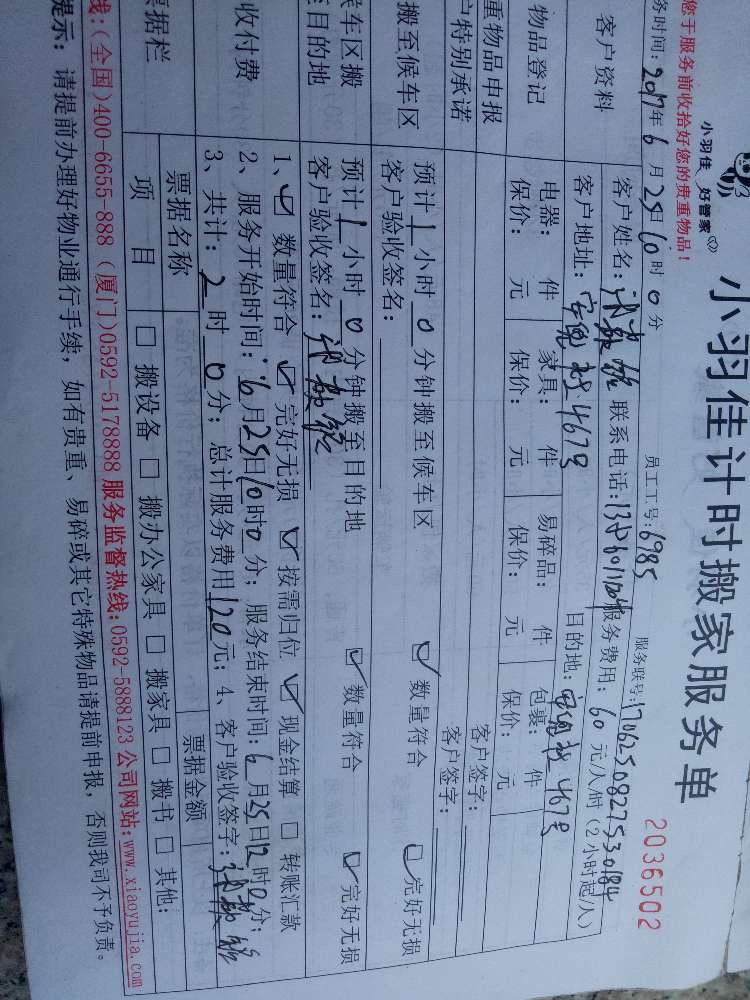 小羽佳 好管家
小羽佳计时搬家服务单
2036502
您于服务前收拾好您的贵重物品！
员工工号：6985
服务联号：1706250827530184
务时间：2017年6月25日10时0分
客户资料
客户姓名： 联系电话： 服务费用：60元/人/时（2小时起/人）
客户地址： 467号 目的地： 467号
物品登记
电器： 件 家具： 件 易碎品： 件 包裹： 件
保价： 元 保价： 元 保价： 元 保价： 元
重物品申报 客户签字：
户特别承诺 客户签字：
搬至候车区
预计1小时0分钟搬至候车区 ☑数量符合 ☑完好无损
客户验收签名：
候车区搬
至目的地
预计1小时0分钟搬至目的地 ☑数量符合 ☑完好无损
客户验收签名：
收付费
1、☑数量符合 ☑完好无损 ☑按需归位 ☑现金结算 □转账汇款
2、服务开始时间：6月25日10时0分；服务结束时间：6月25日12时0分；
3、共计：2时0分；总计服务费用120元；4、客户验收签字：
票据栏
票据名称 票据金额
项目 □搬设备 □搬办公家具 □搬家具 □搬书 □其他：
线：(全国)400-6655-888（厦门)0592-5178888 服务监督热线:0592-5888123 公司网站:www.xiaoyujia.com
提示：请提前办理好物业通行手续，如有贵重、易碎或其它特殊物品请提前申报，否则我司不予负责。